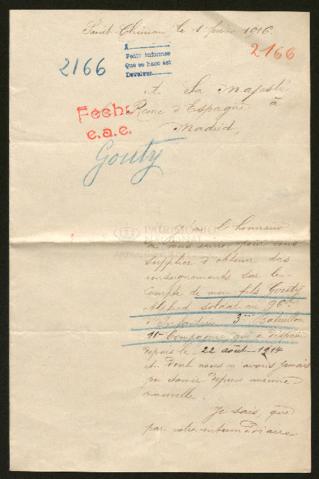 Saint-Chinian le 1 1916
A
Pedir informes
Que se hace est
Devolver
2166
2166
A Sa Majesté
Reine d'Espagne
à
Madrid.
Fecha
e.a.e.
Gouty
PATRIMONIO
NACIONAL
l'honneur
pour vous
supplier d'obtenir des
renseignements sur le
compte de mon fils Gouty
Alfred soldat au 96e
d'infanterie 3me Bataillon
11e Compagnie qui a disparu
depuis le 22 août 1914
et dont nous n'avons jamais
pu savoir depuis aucune
nouvelle.
Je sais que
par votre intermédiaire